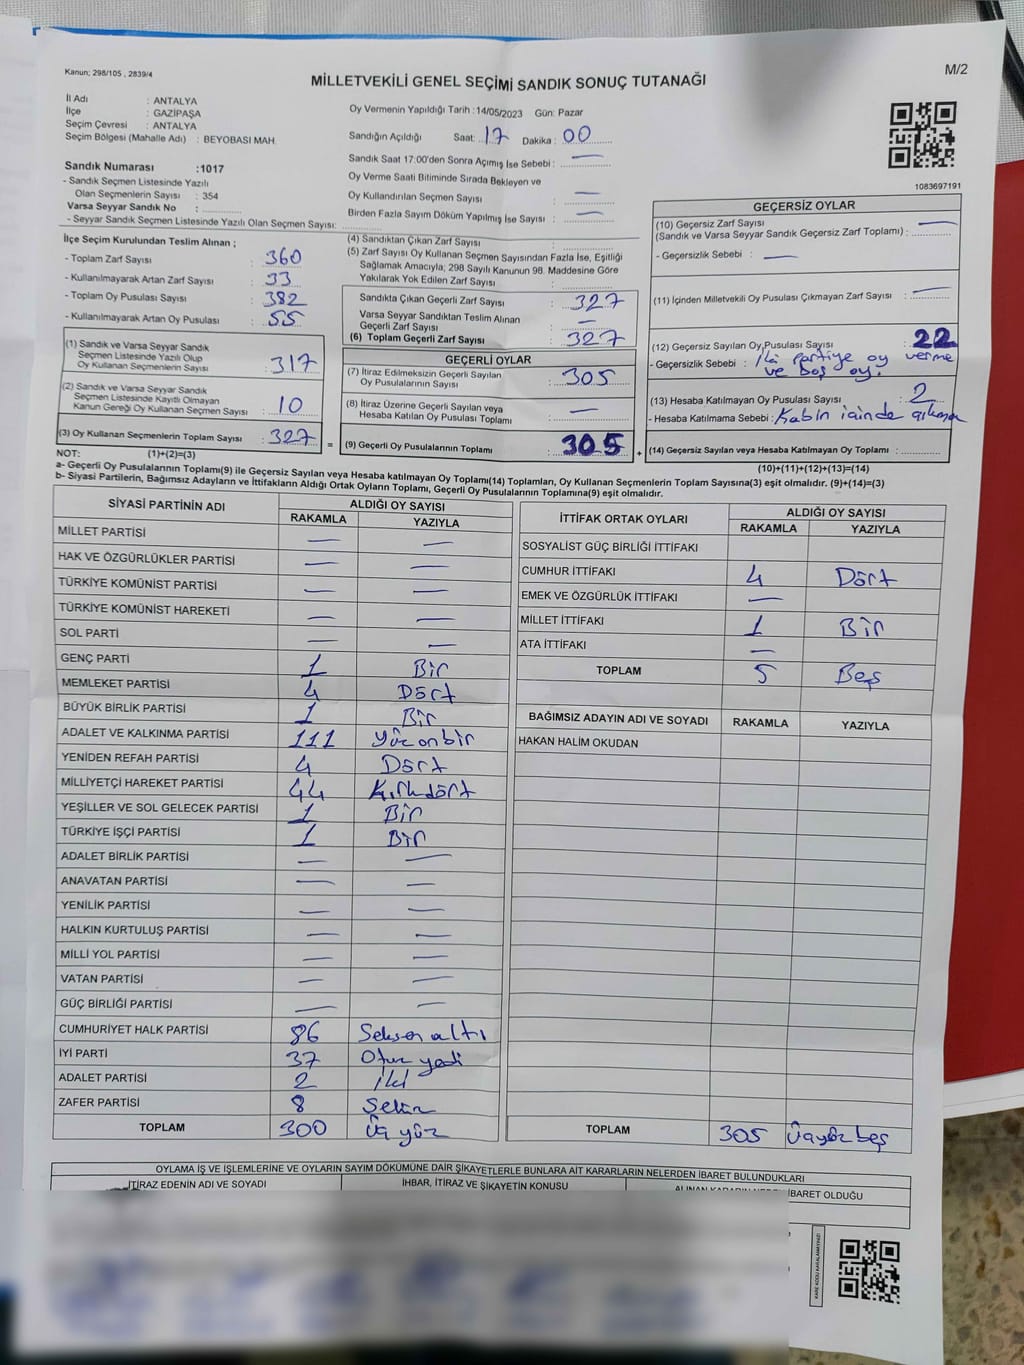 Kanun; 298/105 , 2839/4
M/2
MİLLETVEKİLİ GENEL SEÇİMİ SANDIK SONUÇ TUTANAĞI
İl Adı : ANTALYA
İlçe : GAZİPAŞA
Seçim Çevresi : ANTALYA
Seçim Bölgesi (Mahalle Adı) : BEYOBASI MAH.
Oy Vermenin Yapıldığı Tarih :14/05/2023 Gün: Pazar
Sandığın Açıldığı Saat: 17 Dakika : 00
Sandık Saat 17:00'den Sonra Açımış İse Sebebi : —
Oy Verme Saati Bitiminde Sırada Bekleyen ve
Oy Kullandırılan Seçmen Sayısı : —
Birden Fazla Sayım Döküm Yapılmış İse Sayısı : —
Sandık Numarası :1017
- Sandık Seçmen Listesinde Yazılı
Olan Seçmenlerin Sayısı : 354
Varsa Seyyar Sandık No :
- Seyyar Sandık Seçmen Listesinde Yazılı Olan Seçmen Sayısı:
1083697191
İlçe Seçim Kurulundan Teslim Alınan ;
- Toplam Zarf Sayısı : 360
- Kullanılmayarak Artan Zarf Sayısı : 33
- Toplam Oy Pusulası Sayısı : 382
- Kullanılmayarak Artan Oy Pusulası : 55
(1) Sandık ve Varsa Seyyar Sandık
Seçmen Listesinde Yazılı Olup
Oy Kullanan Seçmenlerin Sayısı : 317
(2) Sandık ve Varsa Seyyar Sandık
Seçmen Listesinde Kayıtlı Olmayan
Kanun Gereği Oy Kullanan Seçmen Sayısı : 10
(3) Oy Kullanan Seçmenlerin Toplam Sayısı : 327 =
(4) Sandıktan Çıkan Zarf Sayısı :
(5) Zarf Sayısı Oy Kullanan Seçmen Sayısından Fazla İse, Eşitliği
Sağlamak Amacıyla; 298 Sayılı Kanunun 98. Maddesine Göre
Yakılarak Yok Edilen Zarf Sayısı :
Sandıkta Çıkan Geçerli Zarf Sayısı : 327
Varsa Seyyar Sandıktan Teslim Alınan
Geçerli Zarf Sayısı : —
(6) Toplam Geçerli Zarf Sayısı : 327
GEÇERLİ OYLAR
(7) İtiraz Edilmeksizin Geçerli Sayılan
Oy Pusulalarının Sayısı : 305
(8) İtiraz Üzerine Geçerli Sayılan veya
Hesaba Katılan Oy Pusulası Toplamı : —
(9) Geçerli Oy Pusulalarının Toplamı : 305 +
GEÇERSİZ OYLAR
(10) Geçersiz Zarf Sayısı —
(Sandık ve Varsa Seyyar Sandık Geçersiz Zarf Toplamı) :
- Geçersizlik Sebebi : —
(11) İçinden Milletvekili Oy Pusulası Çıkmayan Zarf Sayısı : —
(12) Geçersiz Sayılan Oy Pusulası Sayısı : 22
- Geçersizlik Sebebi : İki partiye oy verme
ve boş oy.
(13) Hesaba Katılmayan Oy Pusulası Sayısı : 2
- Hesaba Katılmama Sebebi : Kabin içinde
(14) Geçersiz Sayılan veya Hesaba Katılmayan Oy Toplamı :
NOT: (1)+(2)=(3)
(10)+(11)+(12)+(13)=(14)
a- Geçerli Oy Pusulalarının Toplamı(9) ile Geçersiz Sayılan veya Hesaba katılmayan Oy Toplamı(14) Toplamları, Oy Kullanan Seçmenlerin Toplam Sayısına(3) eşit olmalıdır. (9)+(14)=(3)
b- Siyasi Partilerin, Bağımsız Adayların ve İttifakların Aldığı Ortak Oyların Toplamı, Geçerli Oy Pusulalarının Toplamına(9) eşit olmalıdır.
SİYASİ PARTİNİN ADI ALDIĞI OY SAYISI
RAKAMLA YAZIYLA
MİLLET PARTİSİ — —
HAK VE ÖZGÜRLÜKLER PARTİSİ — —
TÜRKİYE KOMÜNİST PARTİSİ — —
TÜRKİYE KOMÜNİST HAREKETİ — —
SOL PARTİ — —
GENÇ PARTİ 1 Bir
MEMLEKET PARTİSİ 4 Dört
BÜYÜK BİRLİK PARTİSİ 1 Bir
ADALET VE KALKINMA PARTİSİ 111 Yüz onbir
YENİDEN REFAH PARTİSİ 4 Dört
MİLLİYETÇİ HAREKET PARTİSİ 44 Kırkdört
YEŞİLLER VE SOL GELECEK PARTİSİ 1 Bir
TÜRKİYE İŞÇİ PARTİSİ 1 Bir
ADALET BİRLİK PARTİSİ — —
ANAVATAN PARTİSİ — —
YENİLİK PARTİSİ — —
HALKIN KURTULUŞ PARTİSİ — —
MİLLİ YOL PARTİSİ — —
VATAN PARTİSİ — —
GÜÇ BİRLİĞİ PARTİSİ — —
CUMHURİYET HALK PARTİSİ 86 Seksen altı
İYİ PARTİ 37 Otuz yedi
ADALET PARTİSİ 2 İki
ZAFER PARTİSİ 8 Sekiz
TOPLAM 300 Üç yüz
İTTİFAK ORTAK OYLARI ALDIĞI OY SAYISI
RAKAMLA YAZIYLA
SOSYALİST GÜÇ BİRLİĞİ İTTİFAKI
CUMHUR İTTİFAKI 4 Dört
EMEK VE ÖZGÜRLÜK İTTİFAKI —
MİLLET İTTİFAKI 1 Bir
ATA İTTİFAKI —
TOPLAM 5 Beş
BAĞIMSIZ ADAYIN ADI VE SOYADI RAKAMLA YAZIYLA
HAKAN HALİM OKUDAN
TOPLAM 305 Üçyüz beş
OYLAMA İŞ VE İŞLEMLERİNE VE OYLARIN SAYIM DÖKÜMÜNE DAİR ŞİKAYETLERLE BUNLARA AİT KARARLARIN NELERDEN İBARET BULUNDUKLARI
İTİRAZ EDENİN ADI VE SOYADI İHBAR, İTİRAZ VE ŞİKAYETİN KONUSU ALINAN KARARIN NEDEN İBARET OLDUĞU
KARE KODU KARALAMAYINIZ!